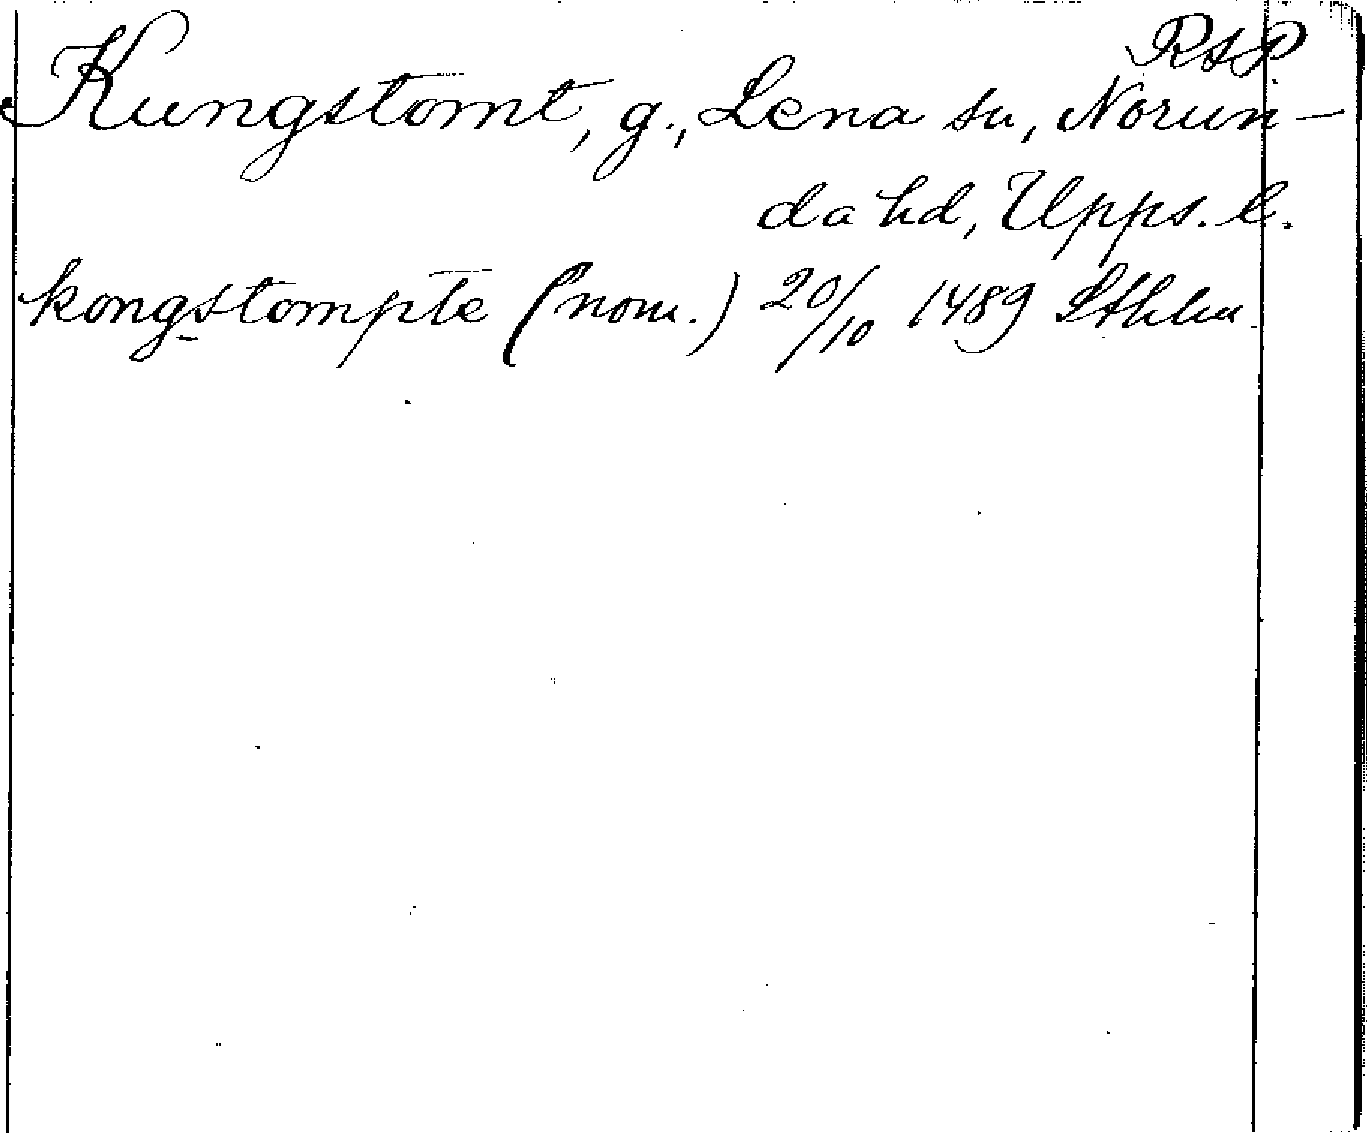 RAP.
Kungstomt, g., Lena sn, Norun-
da hd, Upps. l.
kongstompte (nom.) 20/10 1489 Sthlm